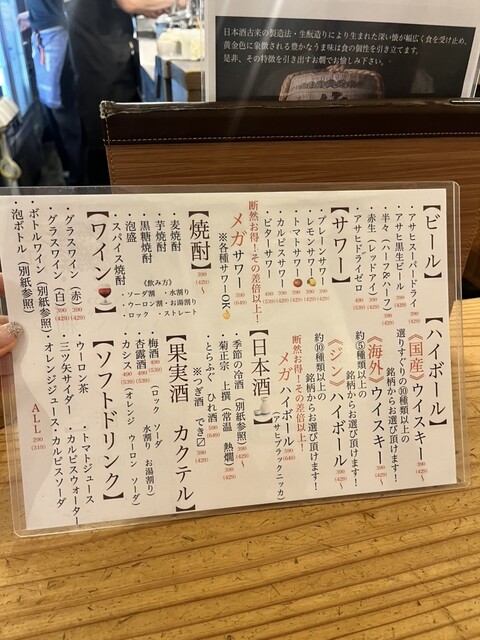 日本酒古来の製造法・生酛造りにより生まれた深い懐が幅広く食を受け止め、
黄金色に象徴される豊かなうま味は食の個性を引き立てます。
是非、その特徴を引き出すお燗でお愉しみ下さい。
【ビール】
・アサヒスーパードライ
・アサヒ黒生ビール 390 (429)
・半々(ハーフ&ハーフ) 390 (429)
・赤生(レッドアイ) 390 (429)
・アサヒドライゼロ 390 (429)
【サワー】
・プレーンサワー 390 (429)
・レモンサワー 390 (429)
・トマトサワー 390 (429)
・カルピスサワー
・ビターサワー
断然お得!その差倍以上!
メガサワー
※各種サワーOK
【焼酎】 390 (429) ～
・麦焼酎
・芋焼酎
・黒糖焼酎
・泡盛
・スパイス焼酎
《飲み方》
・ソーダ割 ・水割り
・ウーロン割・お湯割り
・ロック ・ストレート
【ワイン】
・グラスワイン(赤) 390 (429)
・グラスワイン(白) 390 (429)
・ボトルワイン(別紙参照)
・泡ボトル(別紙参照)
【ハイボール】
《国産》ウイスキー 390 (429) ～
選りすぐりの⑩種類以上の
銘柄からお選び頂けます!
《海外》ウイスキー 390 (429) ～
約⑤種類以上の
銘柄からお選び頂けます!
《ジン》ハイボール 390 (429) ～
約⑩種類以上の
銘柄からお選び頂けます!
断然お得!その差倍以上!
メガハイボール 590 (649)
(アサヒブラックニッカ)
【日本酒】
・季節の冷酒(別紙参照) 390 (429) ～
・菊正宗 上撰(常温 熱燗) 390 (429)
・とらふぐ ひれ酒 590 (649)
※つぎ酒 でき〼 390 (429)
【果実酒 カクテル】
・梅酒 490 (539) (ロック ソーダ
水割り お湯割り)
・杏露酒 490 (539)
・カシス 490 (539) (オレンジ ウーロン ソーダ)
【ソフトドリンク】
・ウーロン茶 ・トマトジュース
・三ツ矢サイダー ・カルピスウォーター
・オレンジジュース・カルピスソーダ
ALL 290 (319)